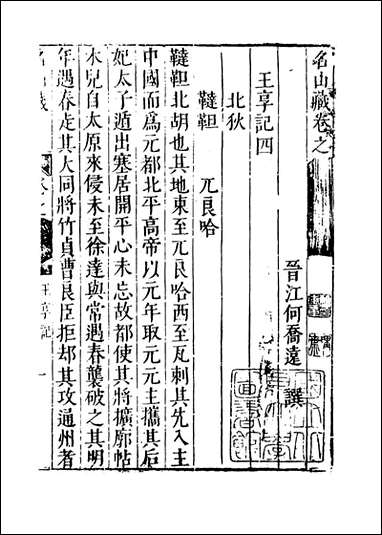 名山藏卷之
晉江何喬遠 譔
王享記四
北狄
韃靼 兀良哈
韃靼北胡也其地東至兀良哈西至瓦剌其先入主
中國而爲元都北平高帝以元年取元元主攜其后
妃太子遁出塞居開平心未忘故都使其將擴廓帖
木兒自太原來侵未至徐達與常遇春襲破之其明
年遇春走其大同將竹貞曹良臣拒却其攻通州者
王享記
一